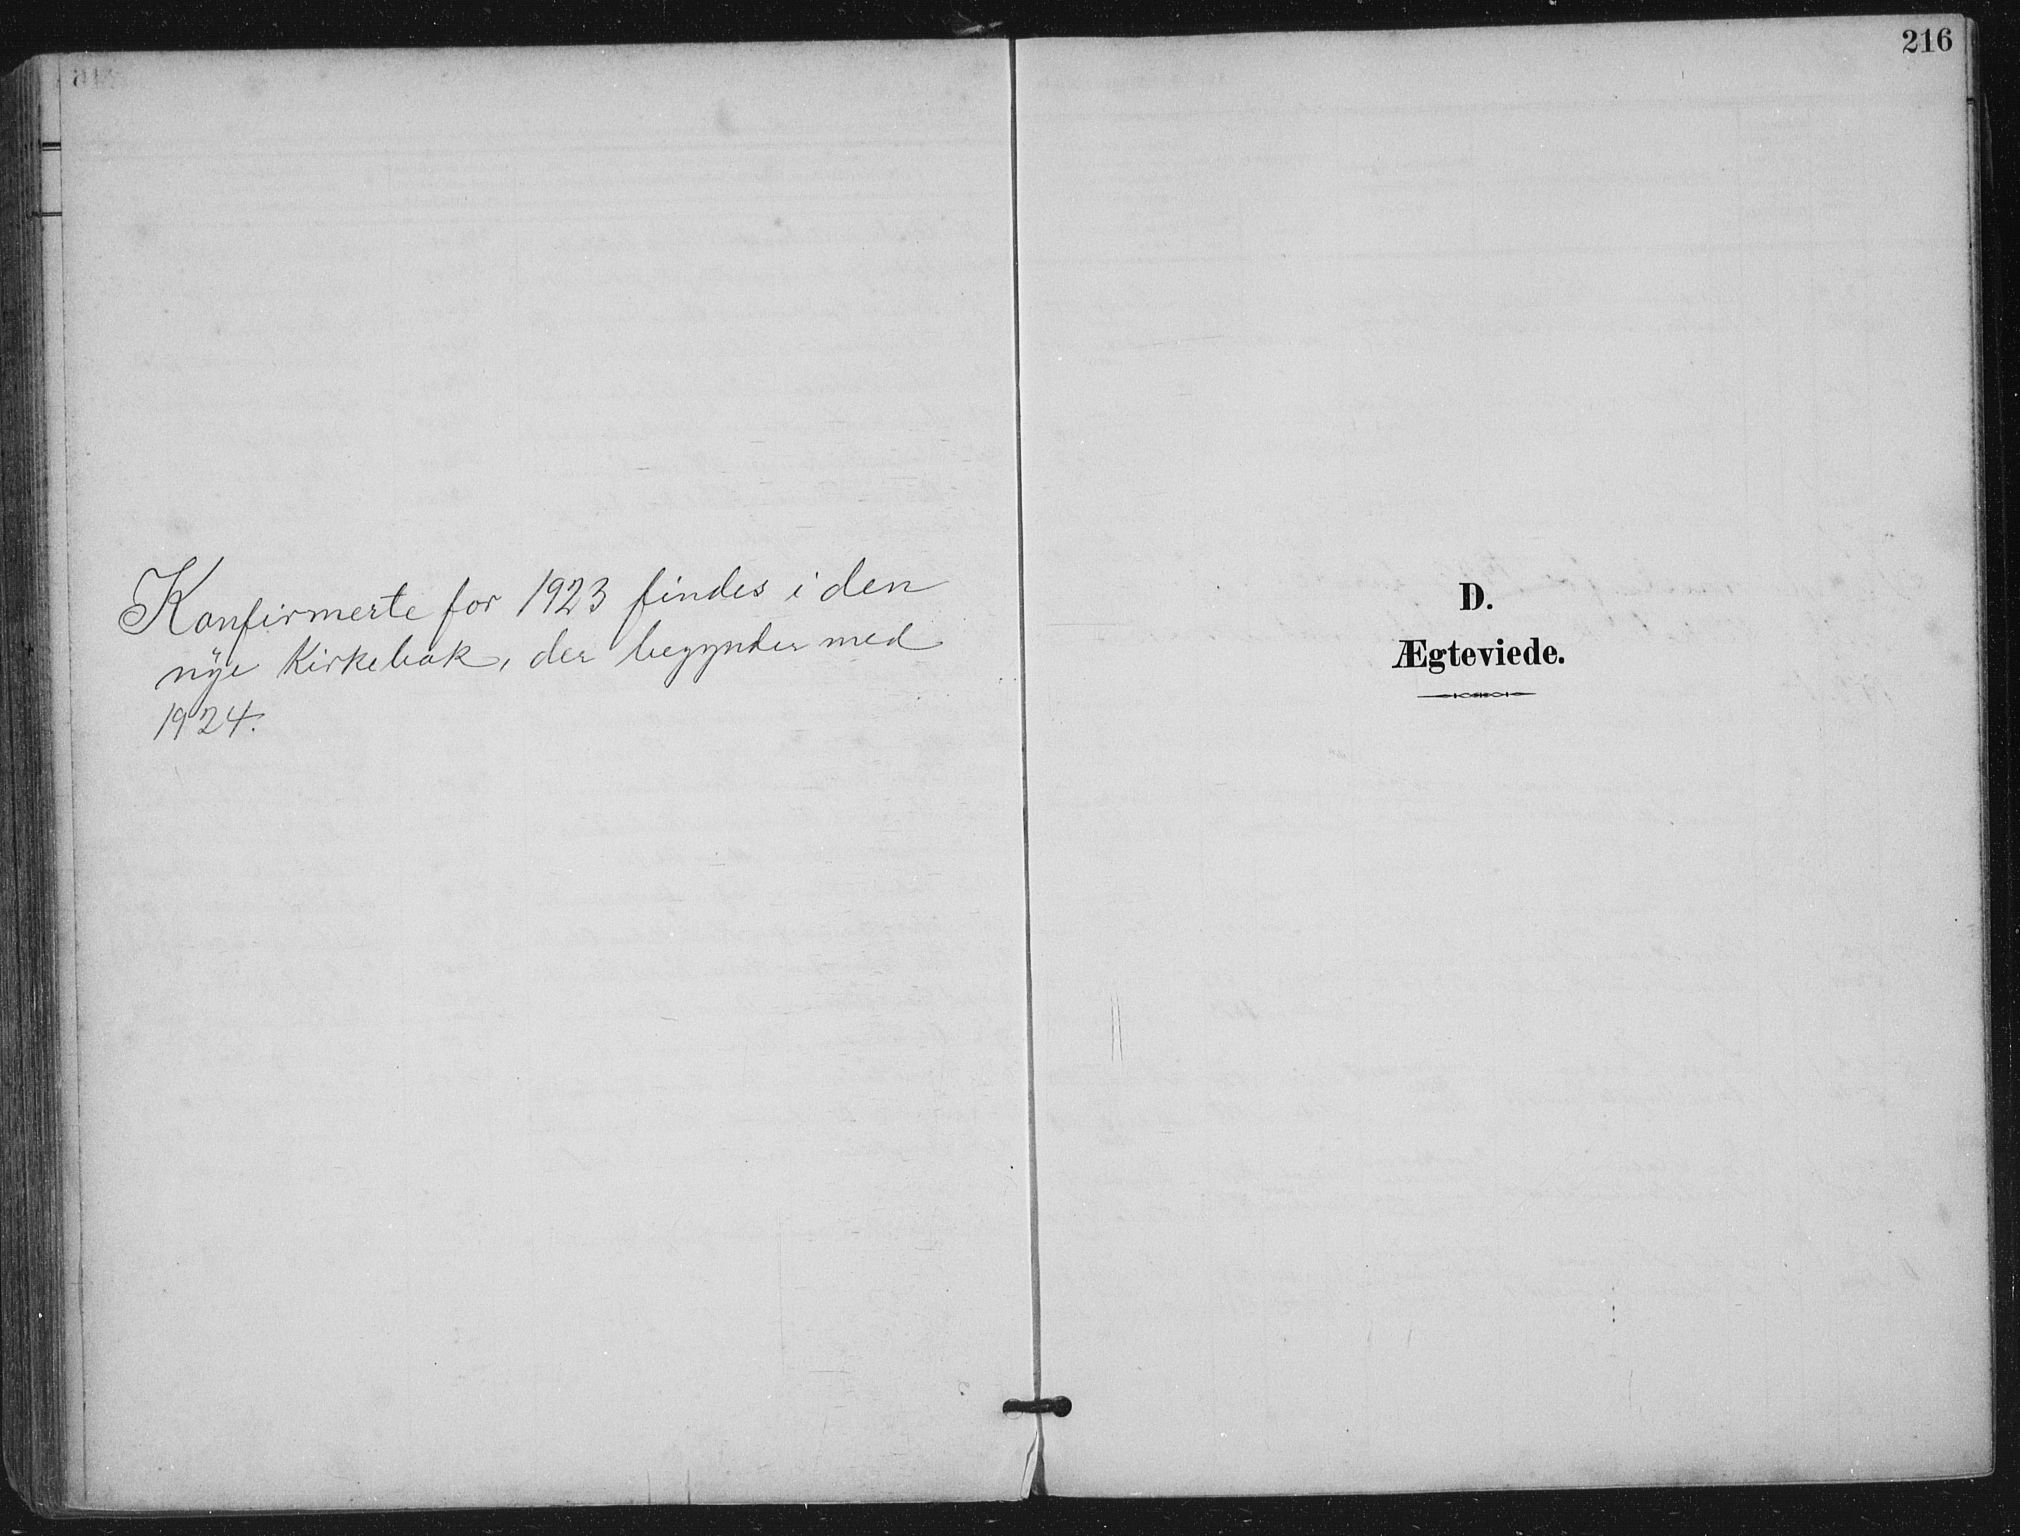 Konfirmerte for 1923 findes i den
nye Kirkebok, der begynder med
1924.
216
D.
Ægteviede.